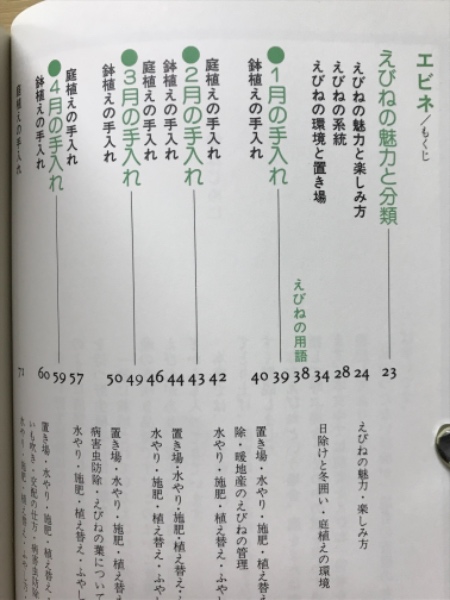 エビネ／もくじ
えびねの魅力と分類 23
えびねの魅力と楽しみ方 24 えびねの魅力・楽しみ方
えびねの系統 28
えびねの環境と置き場 34 日除けと冬囲い・庭植えの環境
えびねの用語 38
●1月の手入れ 39
鉢植えの手入れ 40 置き場・水やり・施肥・植え替え・
除・暖地産のえびねの管理
庭植えの手入れ 42 水やり・施肥・植え替え・ふやし
●2月の手入れ 43
鉢植えの手入れ 44 置き場・水やり・施肥・植え替え・
庭植えの手入れ 46 水やり・施肥・植え替え・ふやし
●3月の手入れ 49
鉢植えの手入れ 50 置き場・水やり・施肥・植え替え・
病害虫防除・えびねの葉について
庭植えの手入れ 57 水やり・施肥・植え替え・ふやし
●4月の手入れ 59
鉢植えの手入れ 60 置き場・水やり・施肥・植え替え・
いも吹き・交配の仕方・病害虫防除
庭植えの手入れ 71 水やり・施肥・植え替え・ふやし